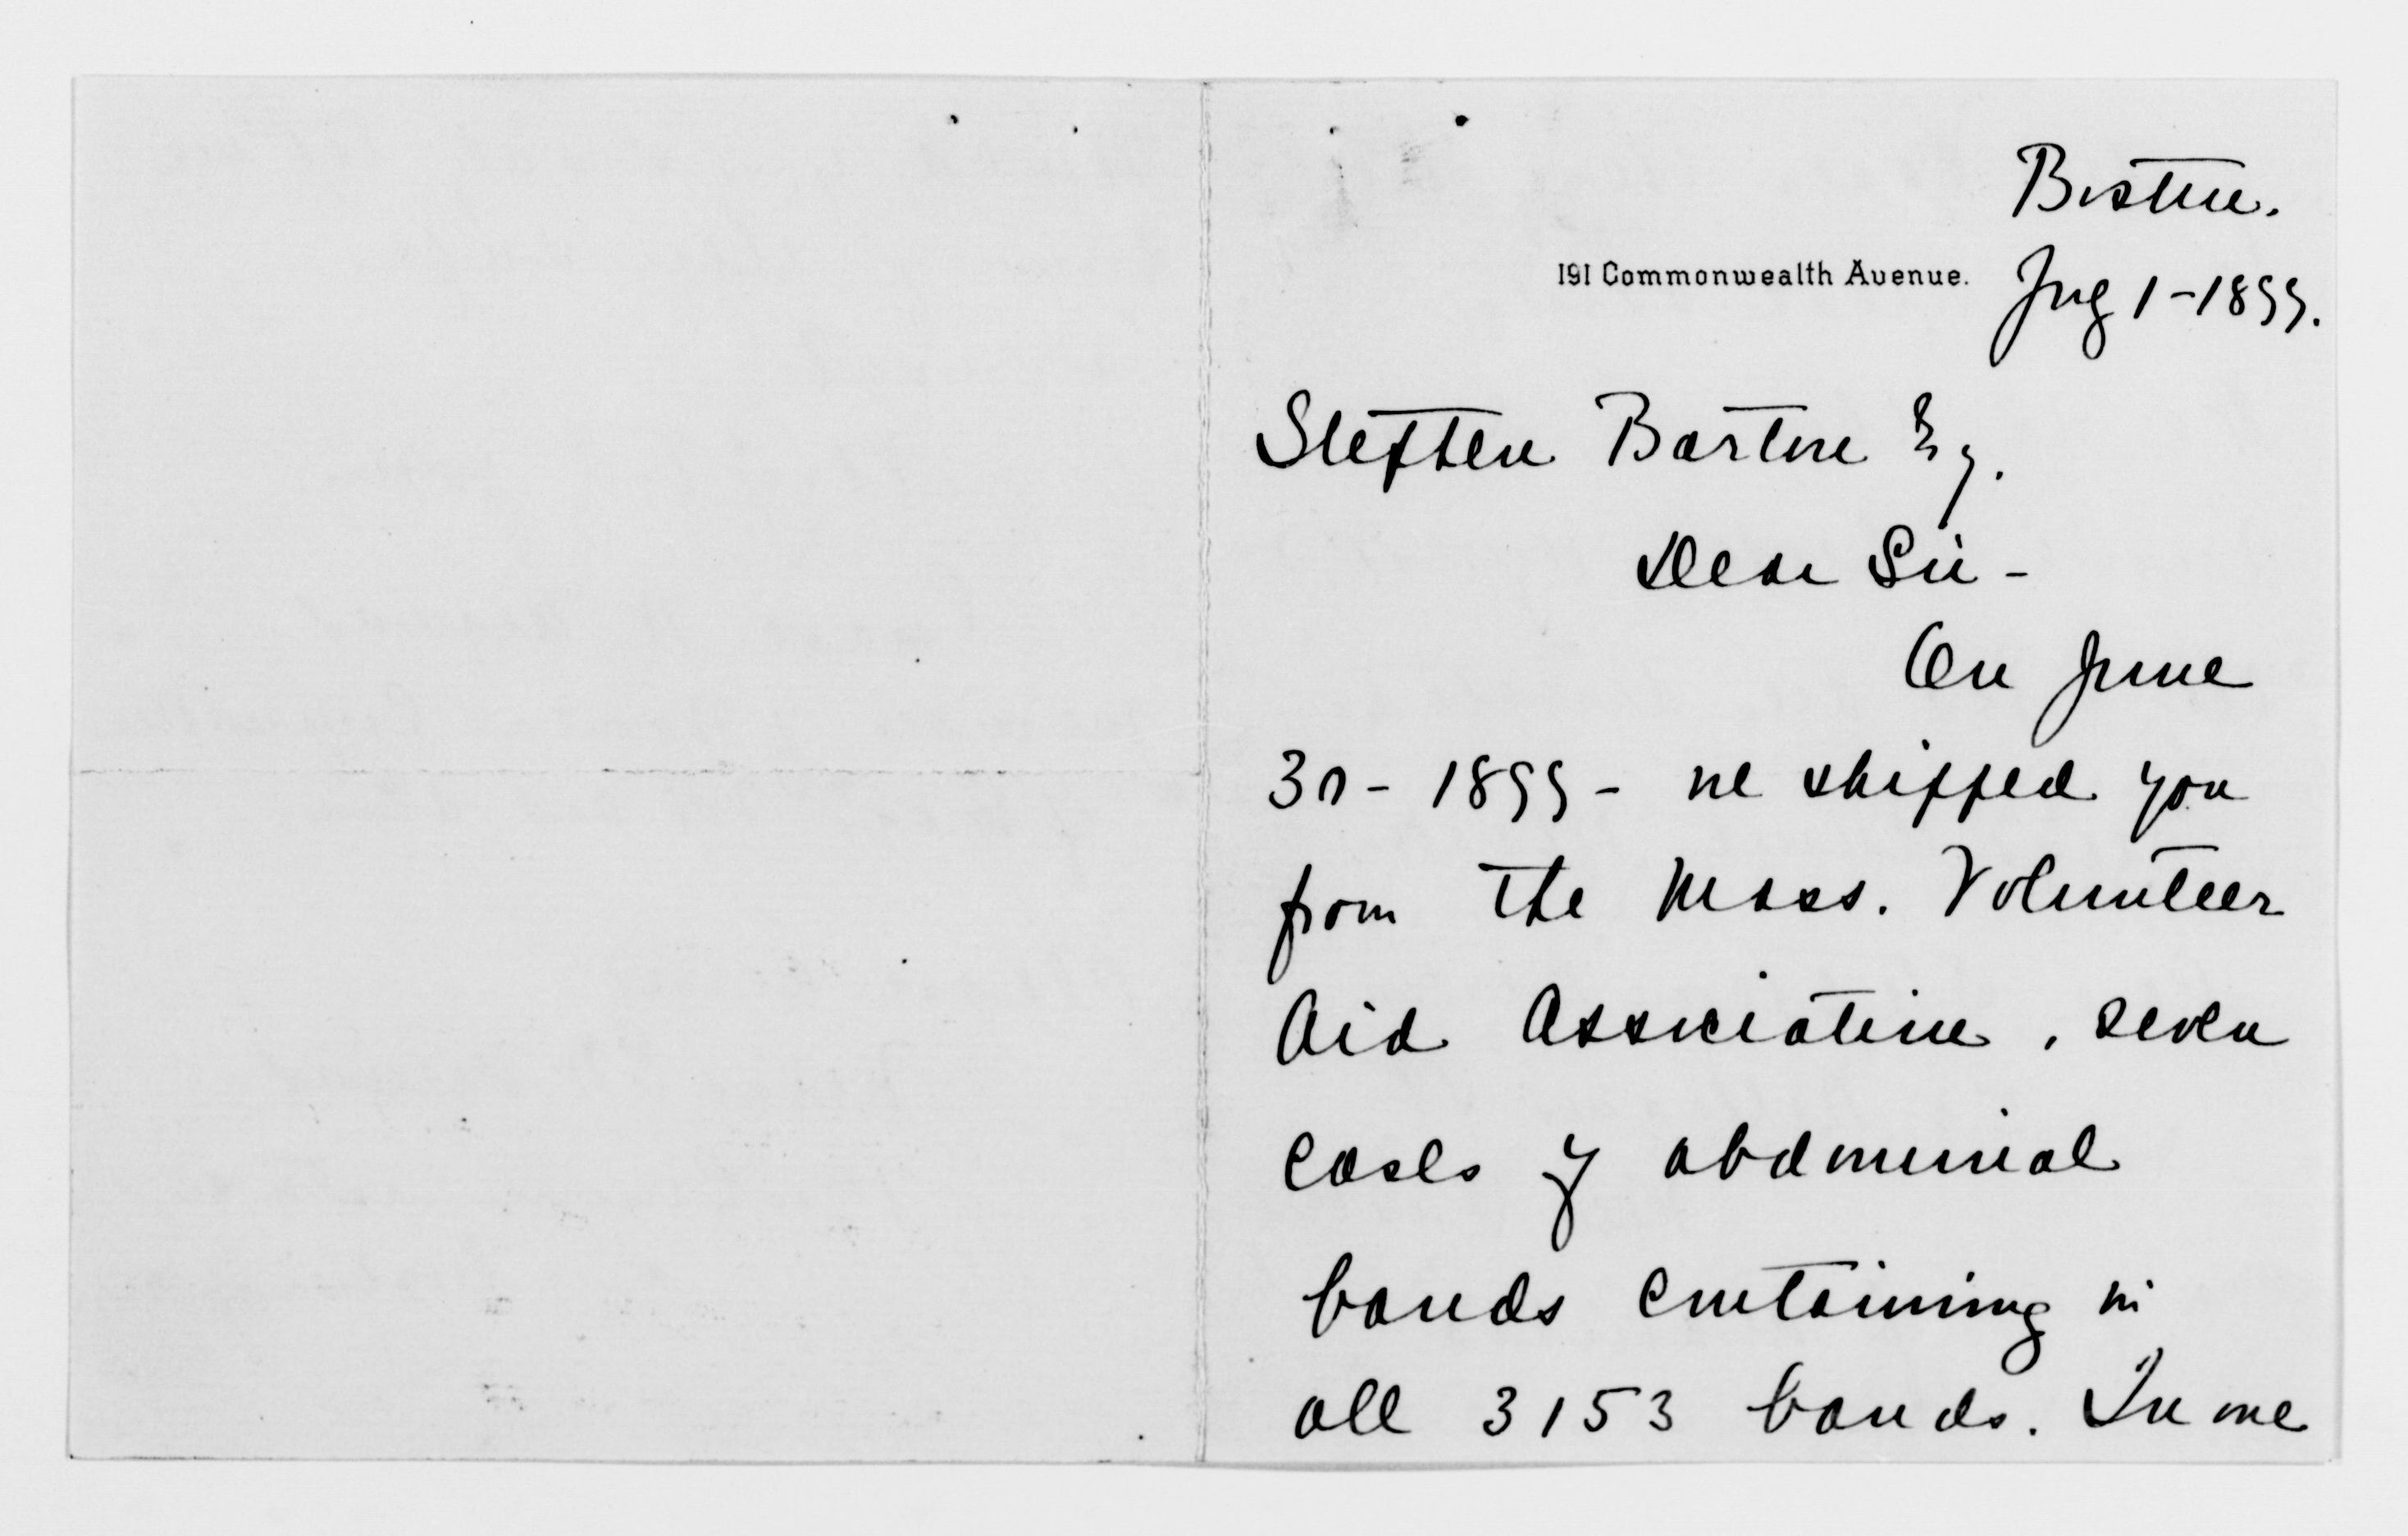 Boston.
191 Commonwealth Avenue.
July 1-1899.
Stephen Barton Esq.
Dear Sir -
On June
30 - 1899 - we shipped you
from the Mass. Volunteer
Aid Association, seven
cases of abdominal
bands containing in
all 3153 bands. In one